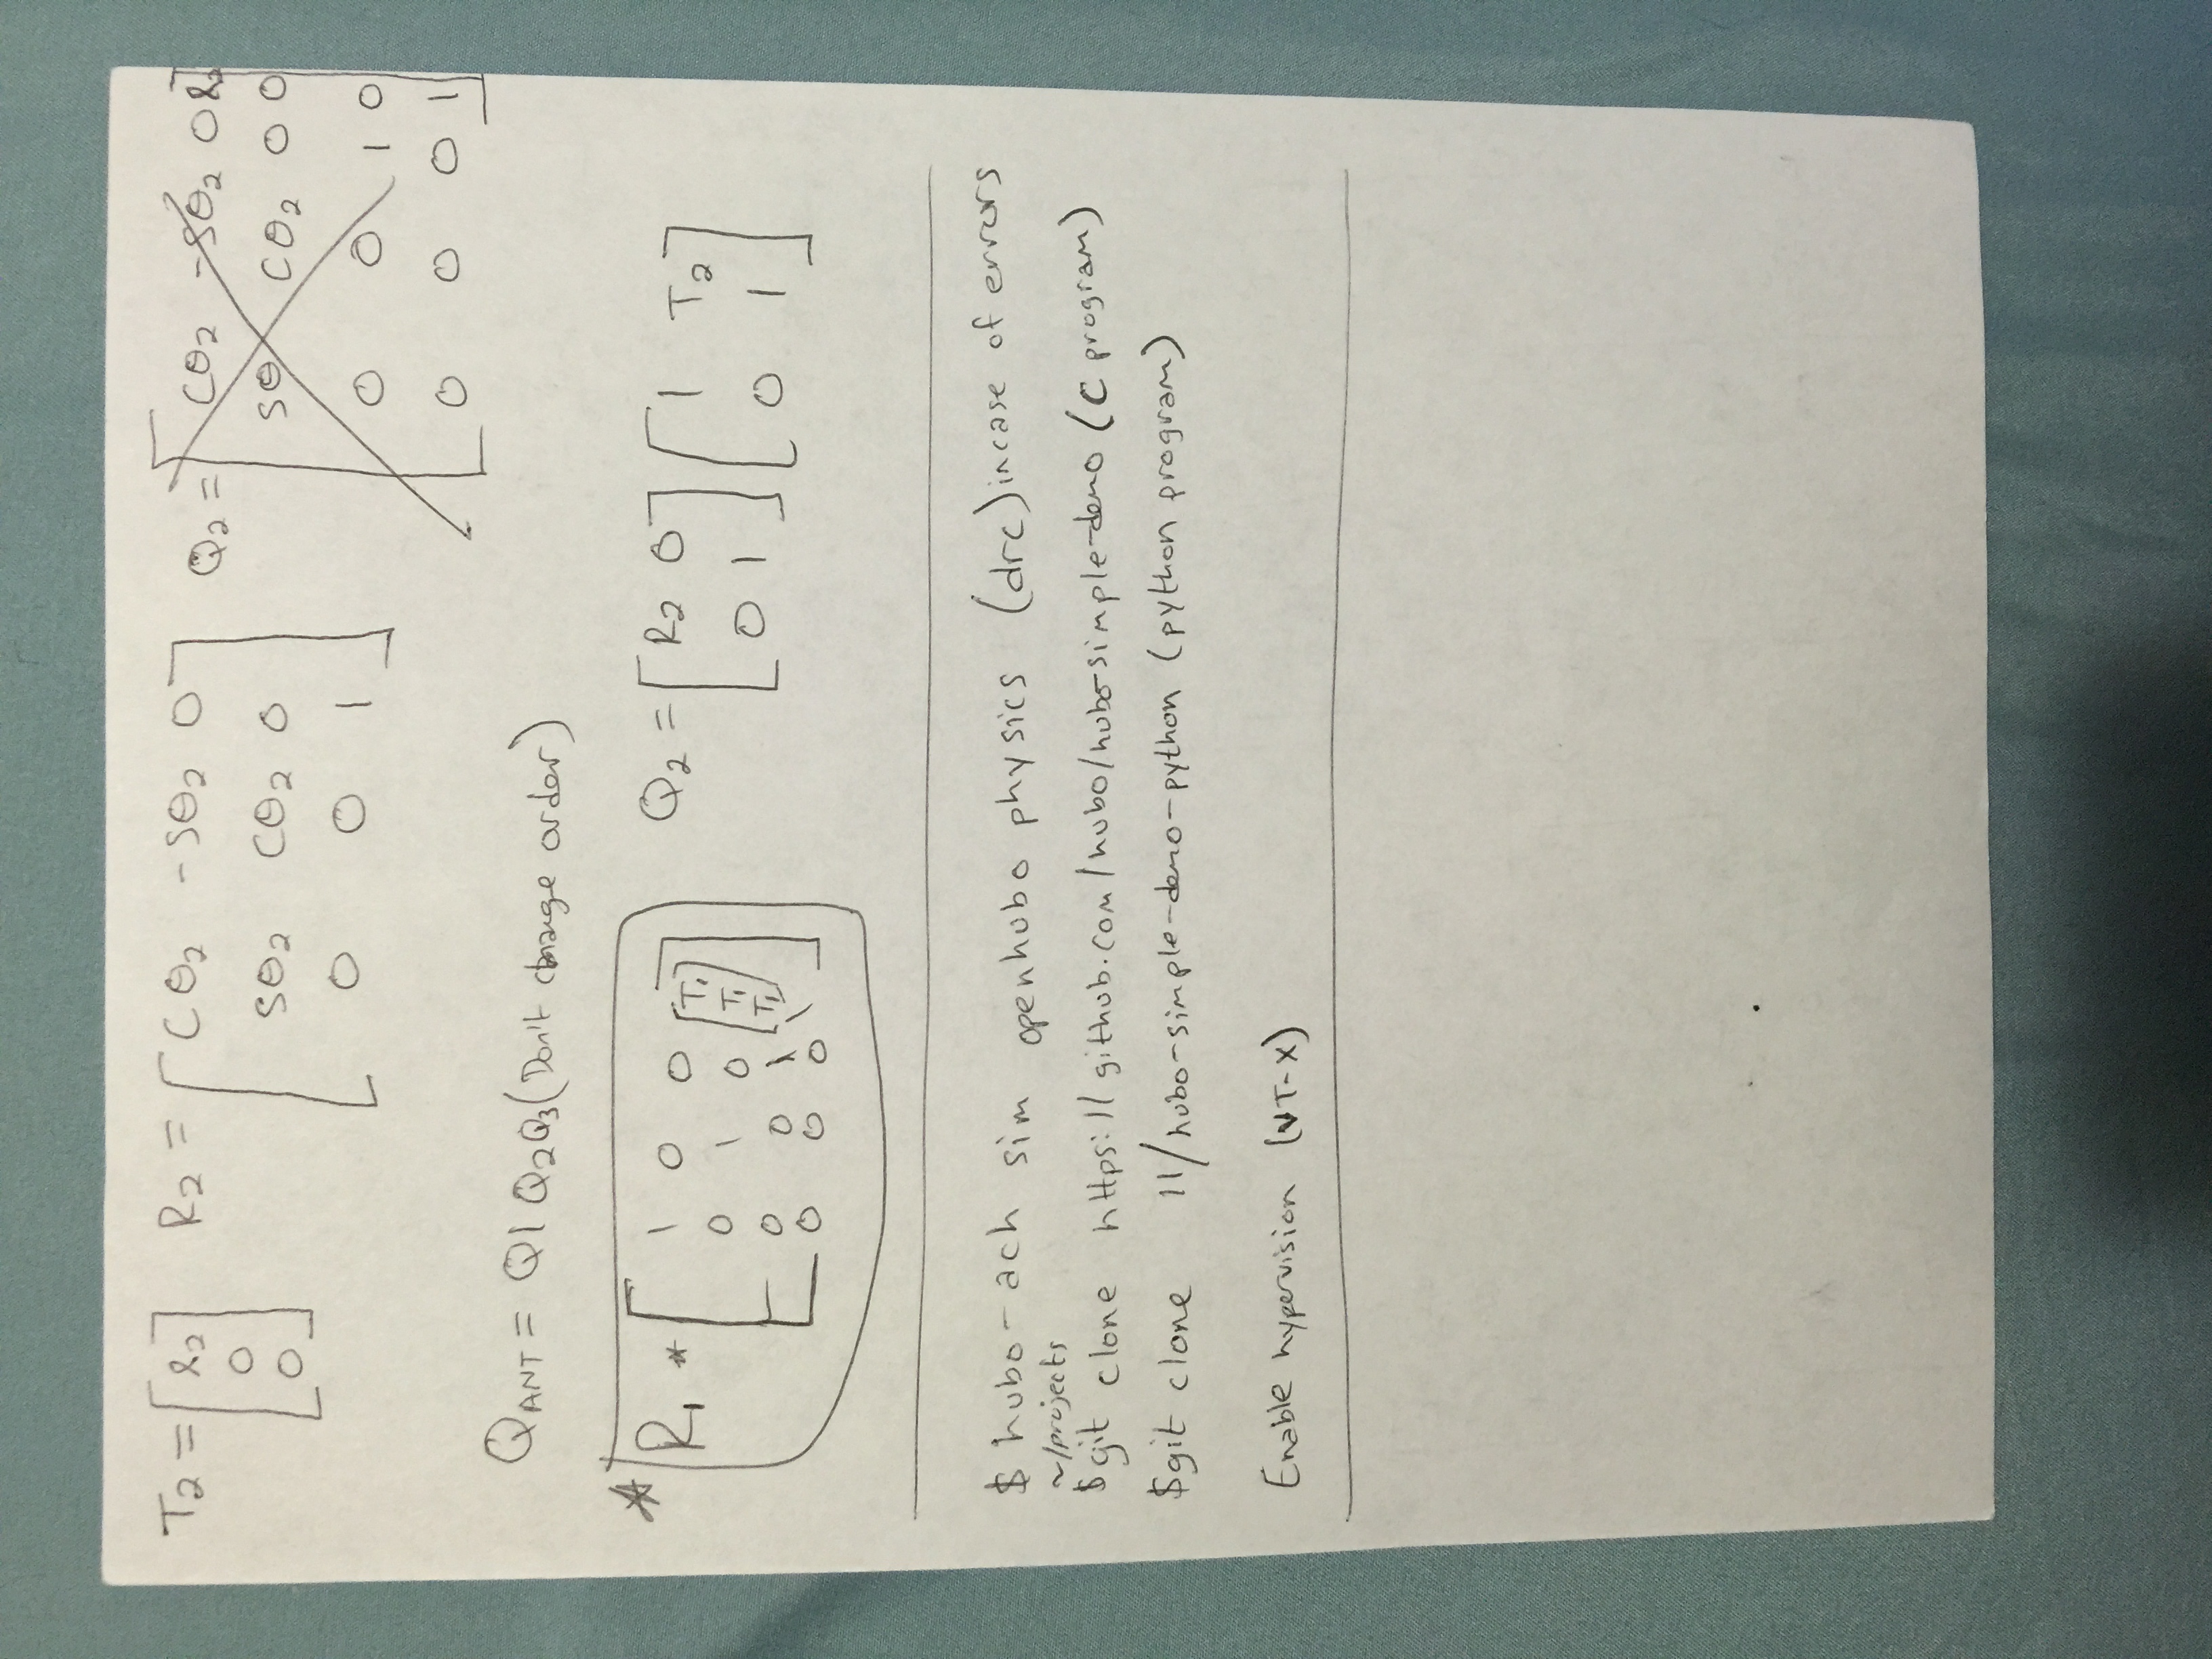 T2 = [ l2 0 0 ] R2 = [ Cθ2 -Sθ2 0
Sθ2 Cθ2 0
0 0 1 ]
Q2 = [ Cθ2 -Sθ2 0 l2
Sθ Cθ2 0 0
0 0 1 0
0 0 0 1 ]
QANT = Q1 Q2 Q3 (Don't change order)
* R1 * [ 1 0 0 T1
0 1 0 T1
0 0 1 T1
0 0 0 1 ]
Q2 = [ R2 0
0 1 ] [ 1 T2
0 1 ]
$ hubo-ach sim openhubo physics (drc) incase of errors
~/projects
$ git clone https://github.com/hubo/hubo-simple-demo (C program)
$ git clone 11/hubo-simple-demo-python (python program)
Enable hypervision (VT-x)